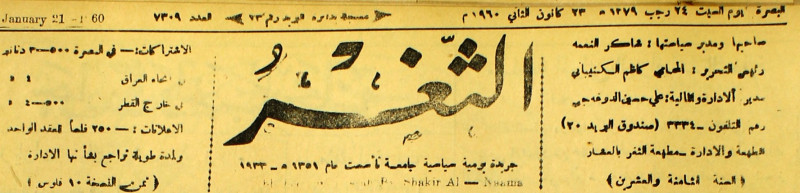 البصرة يوم السبت ٢٤ رجب ١٣٧٩ هـ ٢٣ كانون الثاني ١٩٦٠ م
العدد ٧٣٠٩
January 21
صاحبها ومدير سياستها : شاكر النعمه
رئيس التحرير : المحامي كاظم
مدير الادارة والمالية : علي حسين
رقم التلفون - ٣٣٣٤ (صندوق البريد ٢٠)
الطبعة والادارة - مطبعة الثغر بالعشار
( السنة الثامنة والعشرين )
الثغر
جريدة يومية سياسية جامعة تأسست عام ١٣٥١ هـ - ١٩٣٣
Shakir Al — Naama
الاشتراكات : — في البصرة ٥٠٠-٣
العراق ٤
في خارج القطر ٥٠٠-٤
الاعلانات : — ٢٥٠ فلساً للعقد الواحد
ولمدة طويلة تراجع بها الادارة
( ثمن النسخة ١٠ فلوس )